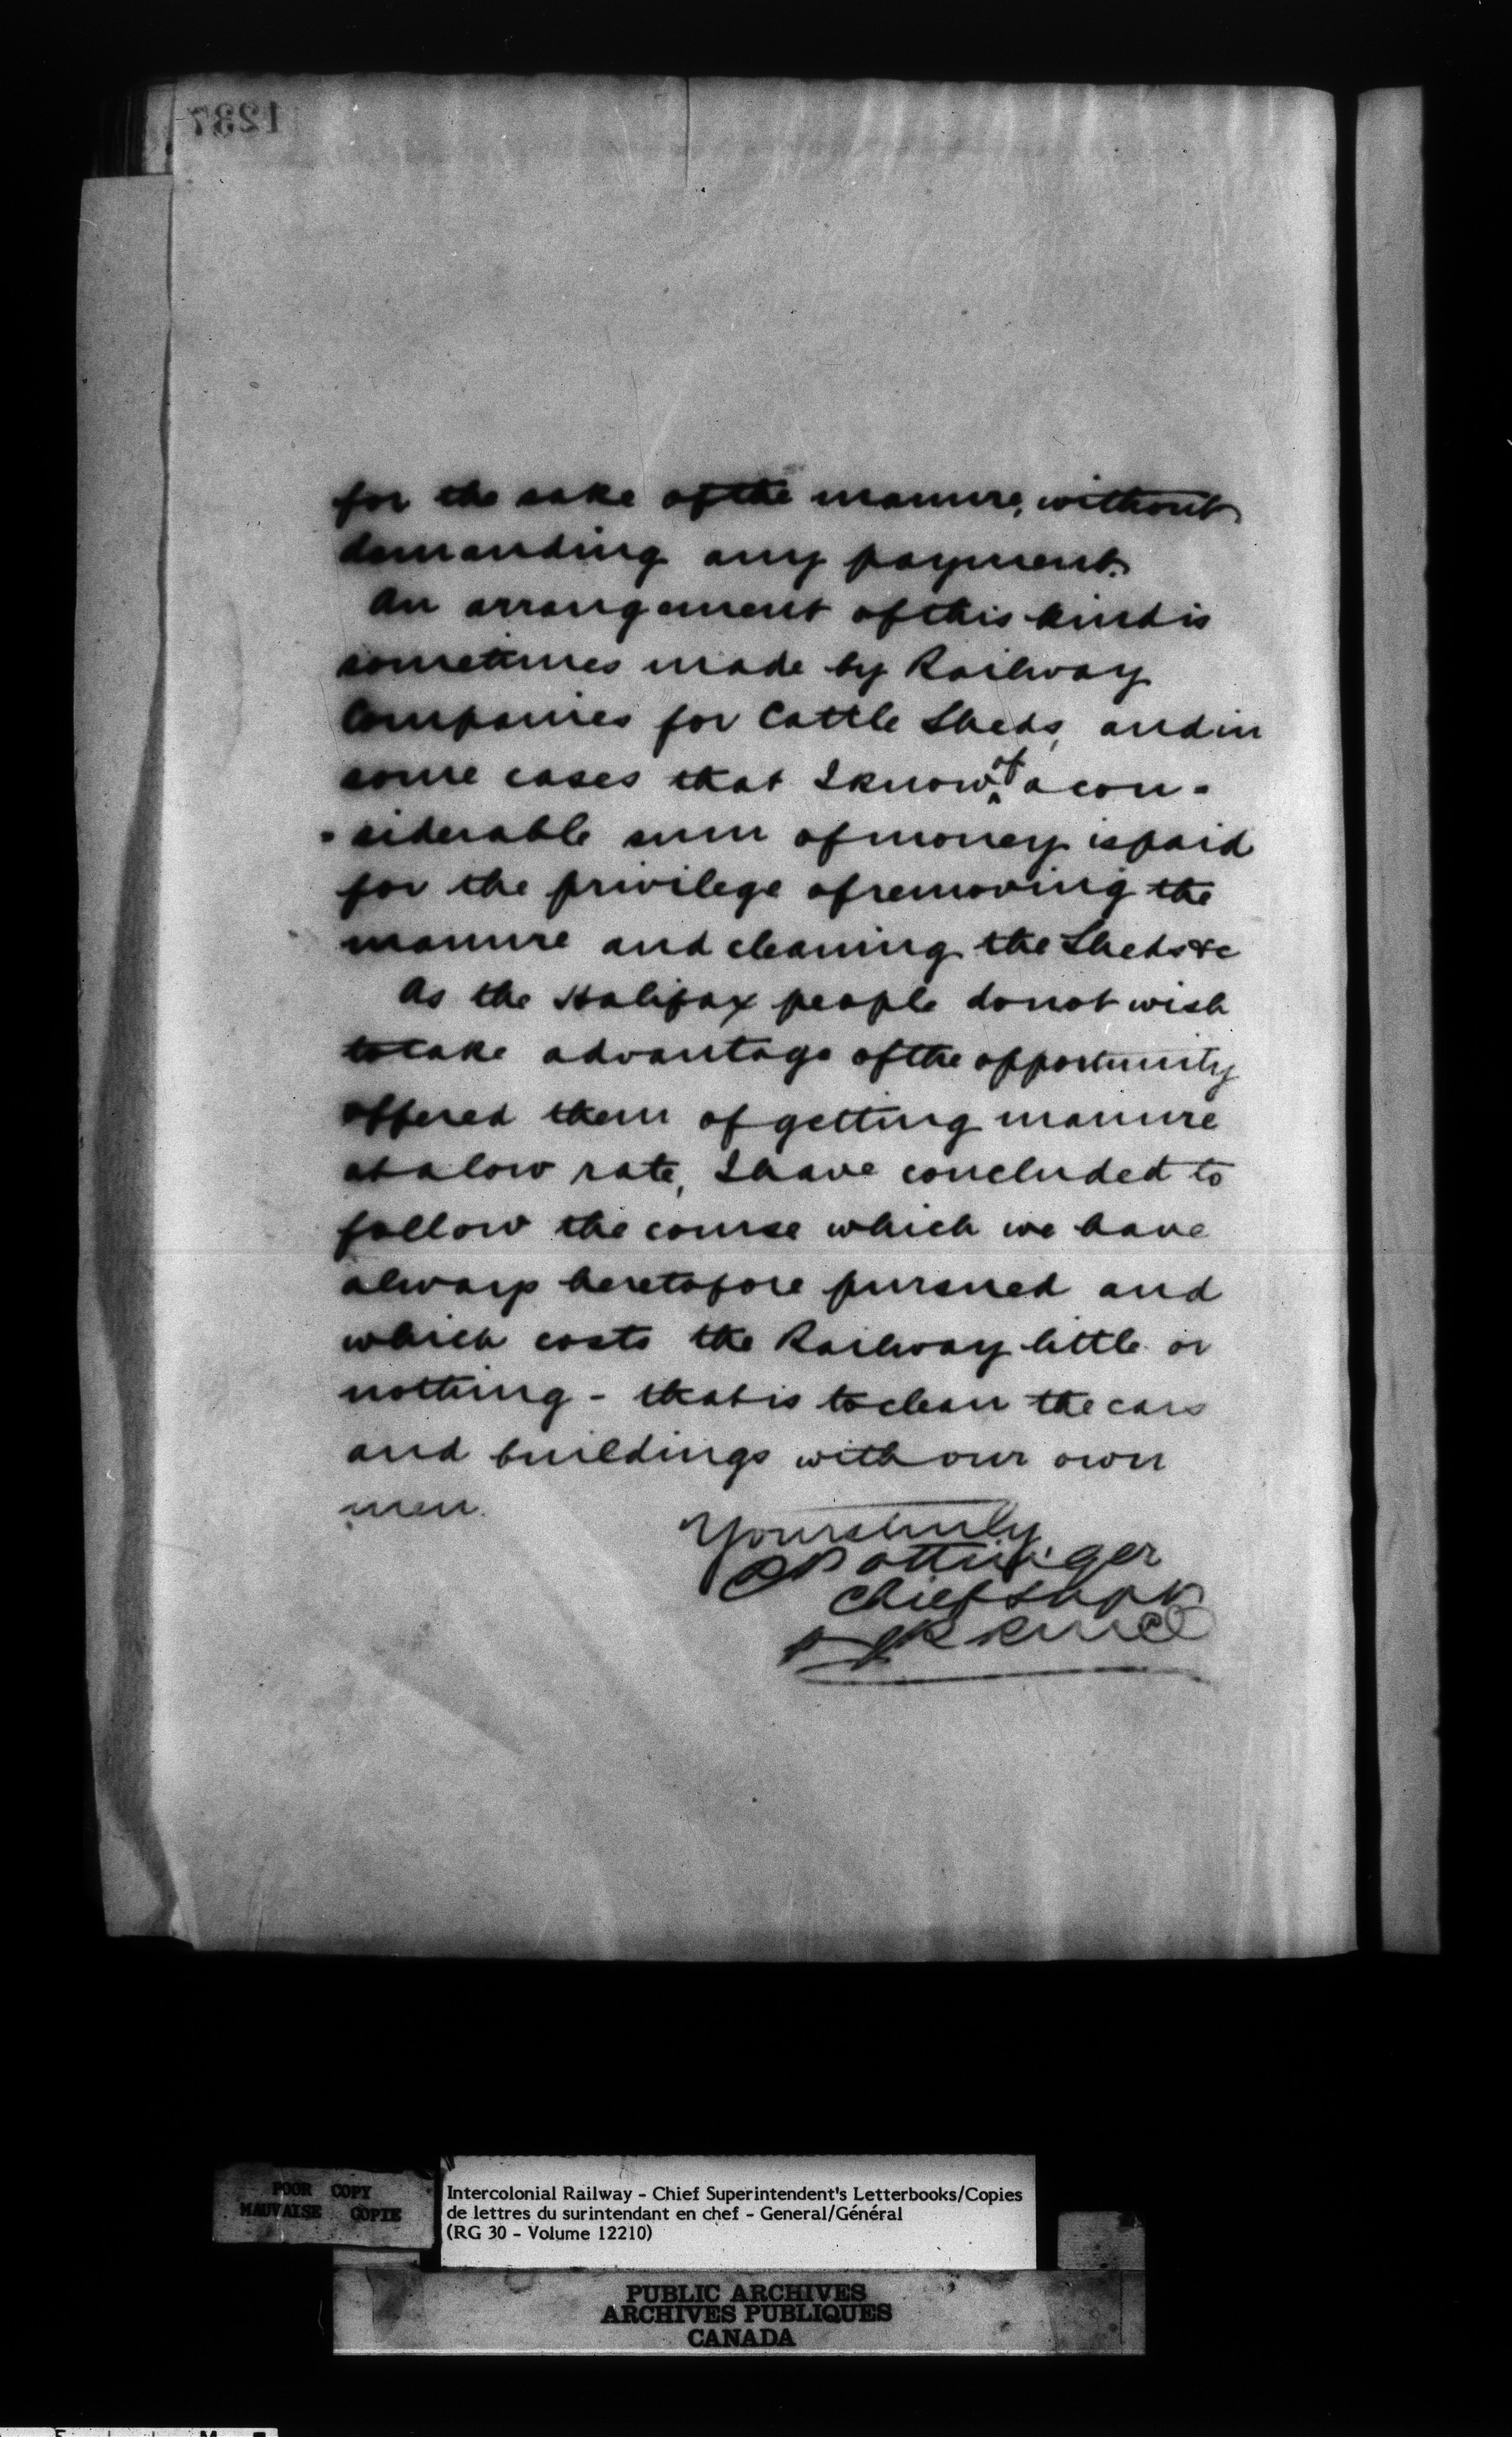 1237
for the sake of the manure, without
demanding any payment.
An arrangement of this kind is
sometimes made by Railway
Companies for Cattle Sheds, and in
some cases that I know of a con-
-siderable sum of money is paid
for the privilege of removing the
manure and cleaning the Sheds &c
As the Halifax people do not wish
to take advantage of the opportunity
offered them of getting manure
at a low rate, I have concluded to
follow the course which we have
always heretofore pursued and
which costs the Railway little or
nothing - that is to clean the cars
and buildings with our own
men.
Yours truly
D Pottinger
Chief Supt
POOR COPY
MAUVAISE COPIE
Intercolonial Railway - Chief Superintendent's Letterbooks/Copies
de lettres du surintendant en chef - General/Général
(RG 30 - Volume 12210)
PUBLIC ARCHIVES
ARCHIVES PUBLIQUES
CANADA